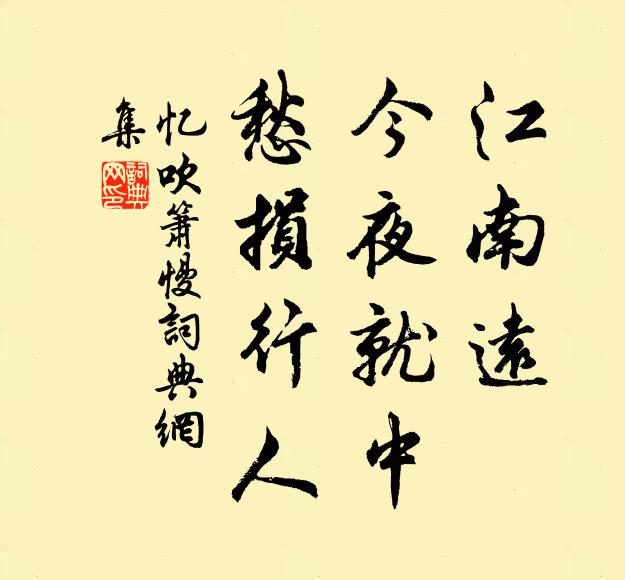 江南遠
今夜就中
愁損行人
忆吹簫慢詞典網
集
詞典网印